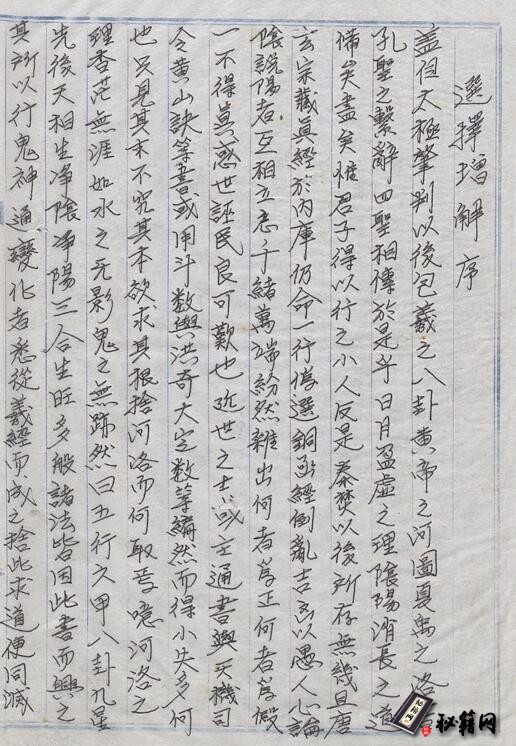 選擇增解序
盖但太極肇判以後包羲之八卦黃帝之河圖夏禹之洛
孔聖之繫辭四聖相傳於是乎日月盈虛之理陰陽消長之道
備矣盡矣惟君子得以行之小人反是秦焚以後所存無幾且唐
玄宗藏眞經於內庫仍命一行僞選銅函經倒亂吉凶以愚人心論
陰說陽者互相立志千緒萬端紛然雜出何者爲正何者爲假
一不得眞惑世誣民良可歎也近世之士或主通書與天機司
令黃山訣等書或用斗數與洪奇大定數等編然而得小失多何
也只見其末不究其本欲求其根捨河洛而何取焉噫河洛之
理杳茫無涯如水之无影鬼之無跡然曰五行六甲八卦九星
先後天相生净陰净陽三合生旺多般諸法皆因此書而興之
其所以行鬼神通變化者悉從羲經而成之捨此求道便同滅
秘籍网
秘籍网